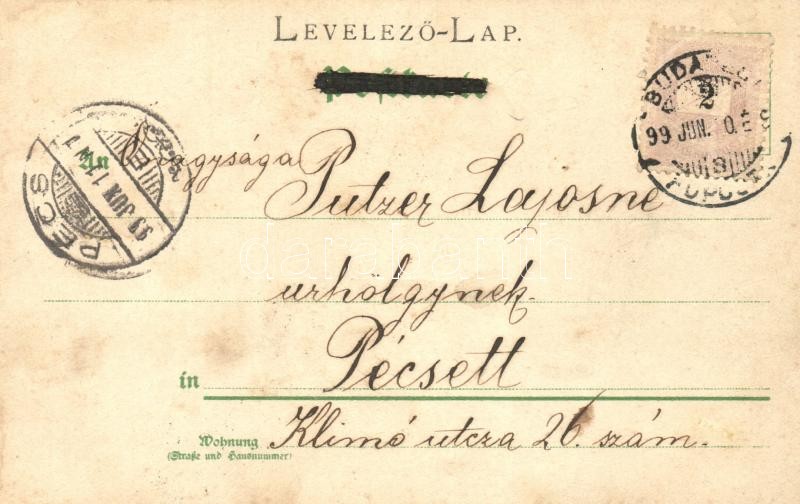 LEVELEZŐ-LAP.
An Ő nagysága
Putzer Lajosné
urhölgynek
in Pécsett
Wohnung Klimó utcza 26. szám.
(Straße und Hausnummer)
PÉCS
99 JUN 11
BUDAPEST
2
99 JUN. 10.
FŐPOSTA
darabanth